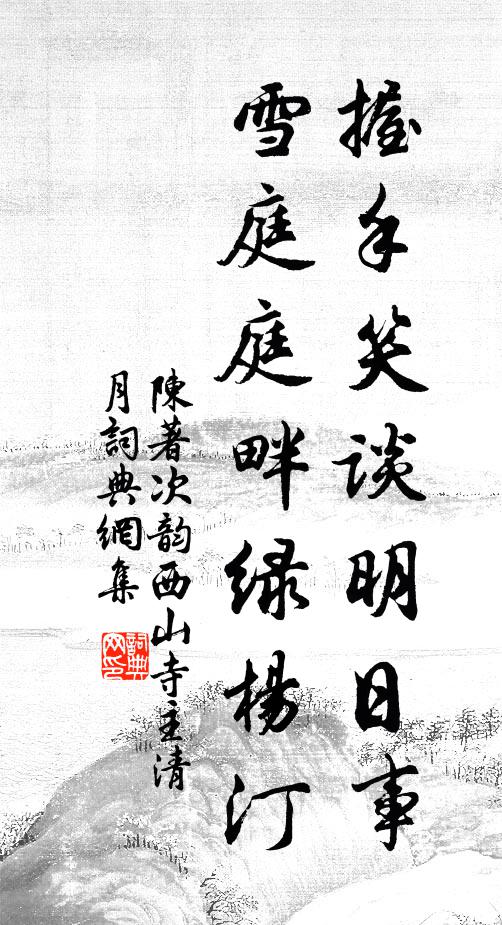 握手笑談明日事
雪庭庭畔綠楊汀
陳著次韵西山寺主清
月詞典網集
詞典
网印